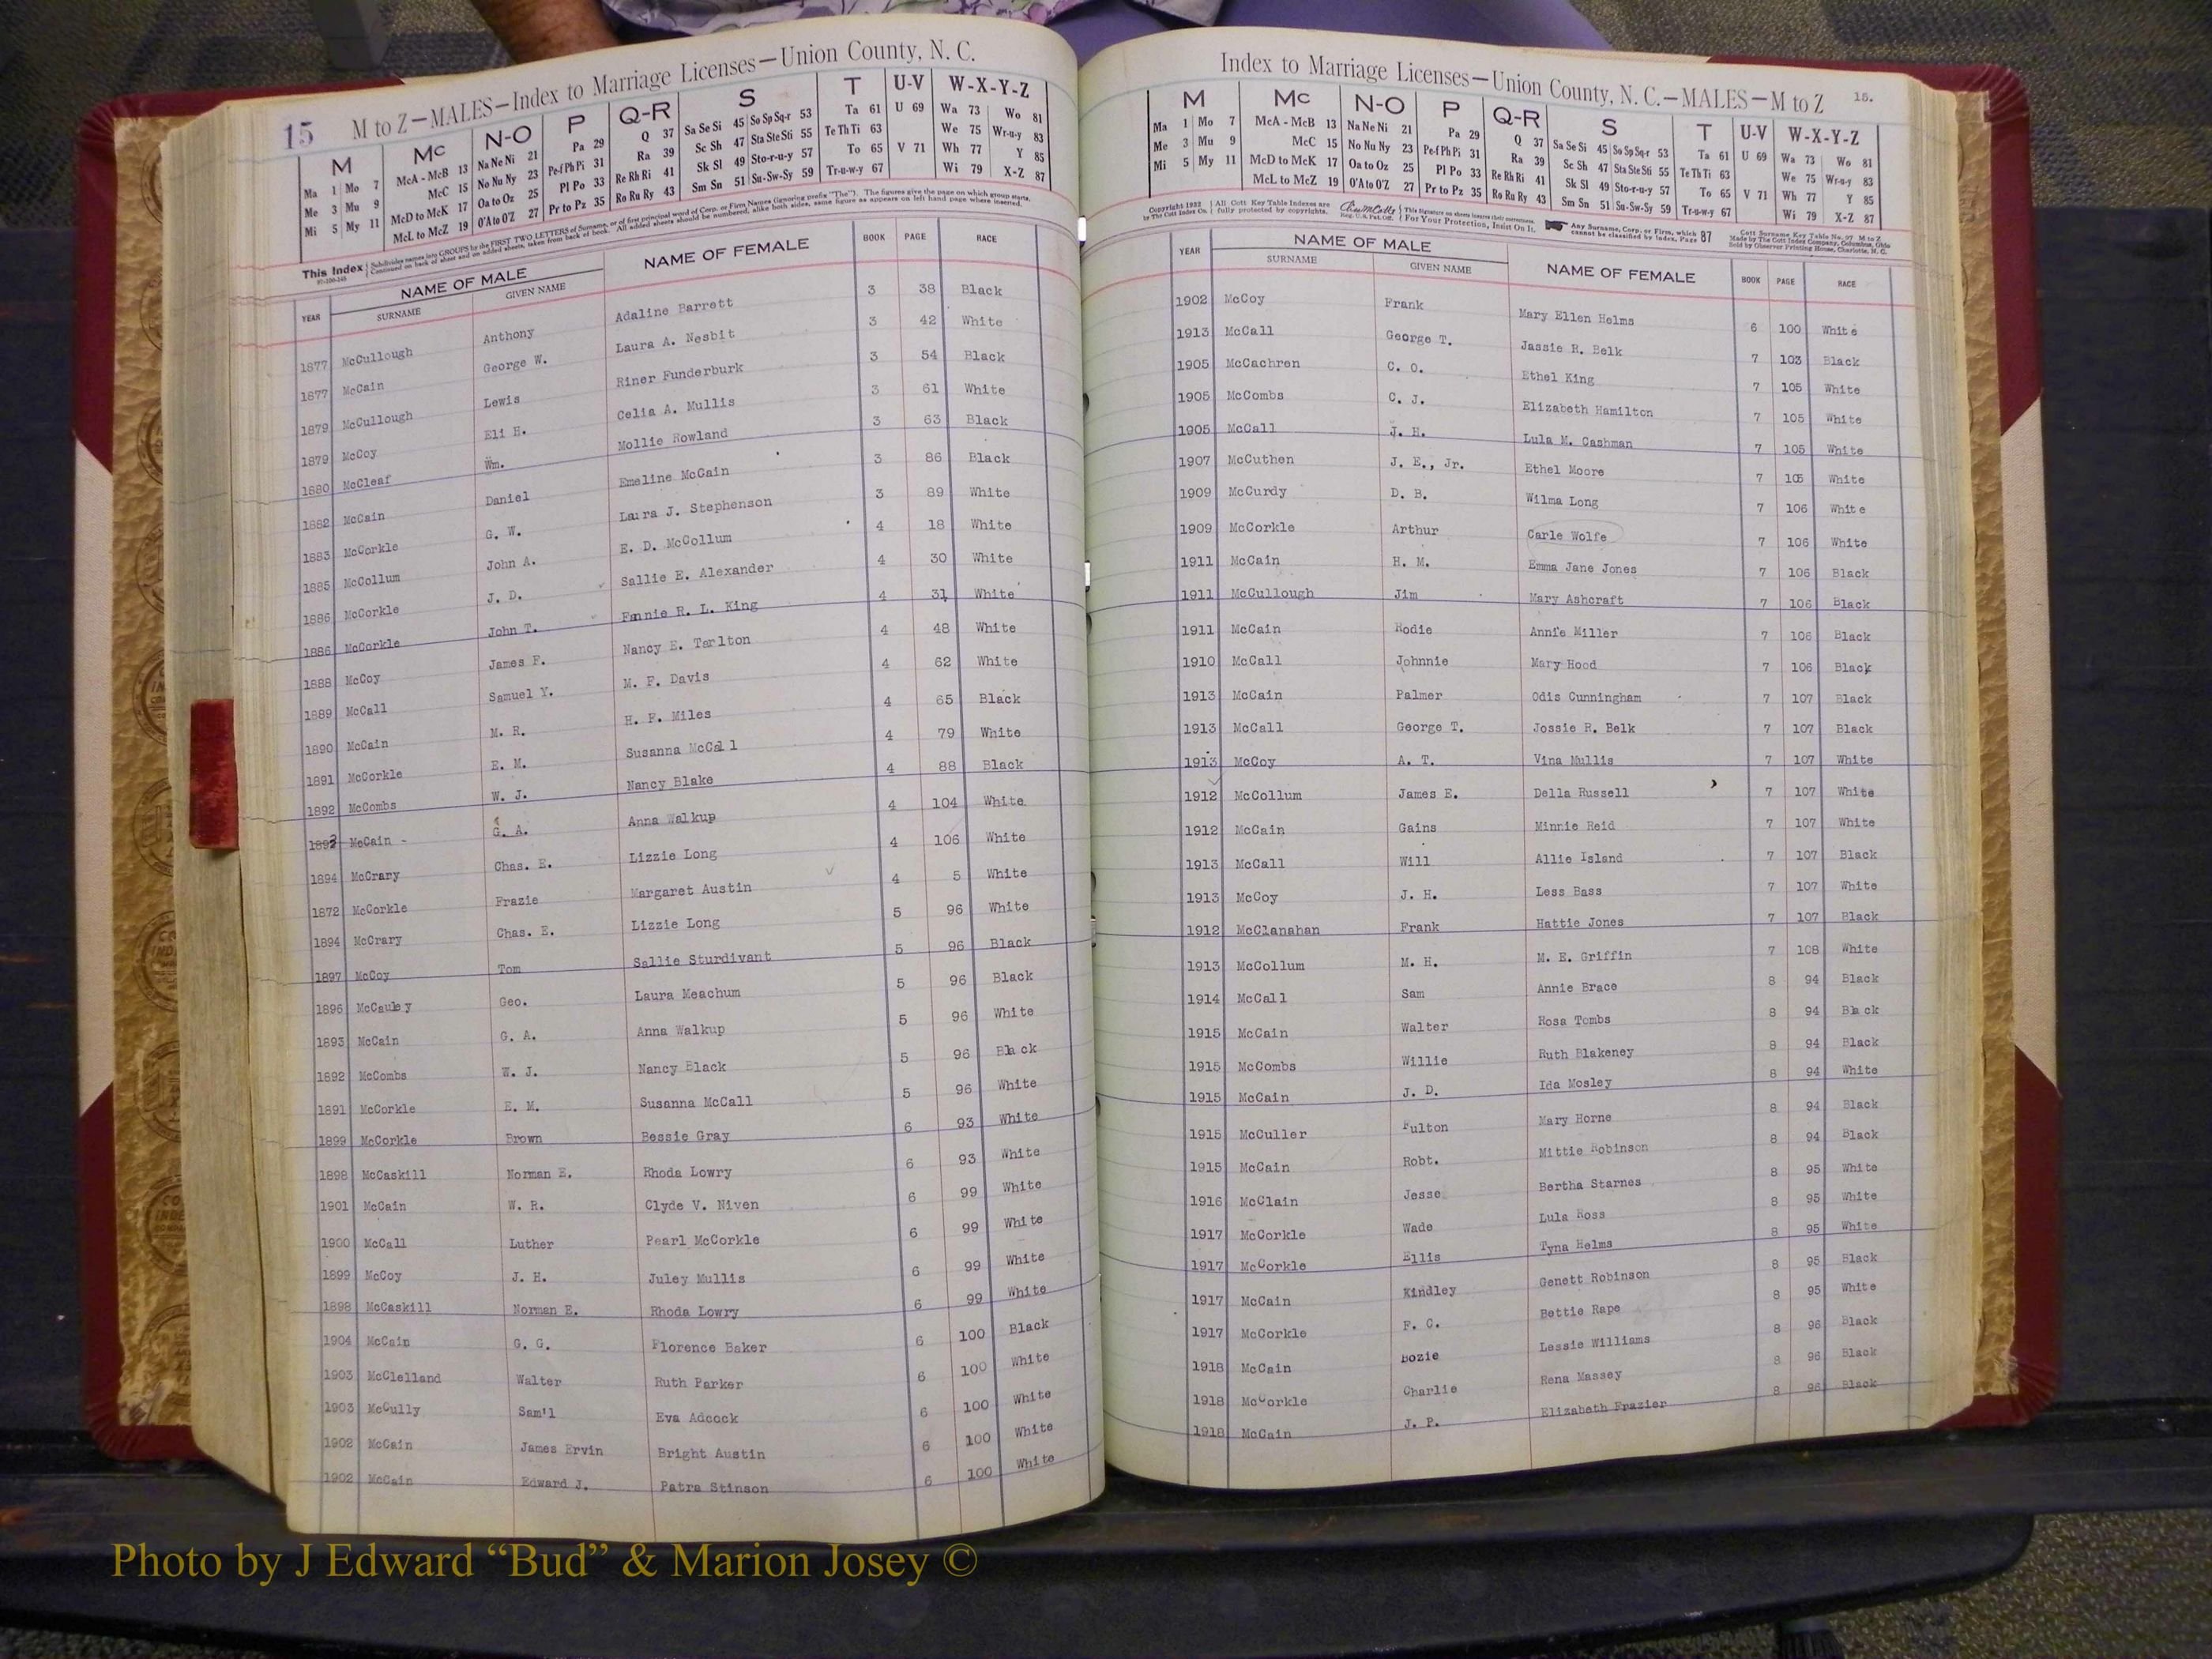 15 M to Z—MALES—Index to Marriage Licenses—Union County, N. C.
M Mc N-O P Q-R S T U-V W-X-Y-Z
Ma 1 Mo 7 McA - McB 13 Na Ne Ni 21 Pa 29 Q 37 Sa Se Si 45 So Sp Sq-r 53 Ta 61 U 69 Wa 73 Wo 81
Me 3 Mu 9 McC 15 No Nu Ny 23 Pe-f Ph Pi 31 Ra 39 Sc Sh 47 Sta Ste Sti 55 Te Th Ti 63 We 75 Wr-u-y 83
Mi 5 My 11 McD to McK 17 Oa to Oz 25 Pl Po 33 Re Rh Ri 41 Sk Sl 49 Sto-r-u-y 57 To 65 V 71 Wh 77 Y 85
McL to McZ 19 O'A to O'Z 27 Pr to Pz 35 Ro Ru Ry 43 Sm Sn 51 Su-Sw-Sy 59 Tr-u-w-y 67 Wi 79 X-Z 87
This Index Subdivides names into GROUPS by the FIRST TWO LETTERS of Surname, or of first principal word of Corp. or Firm Names (ignoring prefix "The"). The figures give the page on which group starts.
Continued on back of sheet and on added sheets, taken from back of book. All added sheets should be numbered, alike both sides, same figure as appears on left hand page where inserted.
YEAR NAME OF MALE NAME OF FEMALE BOOK PAGE RACE
SURNAME GIVEN NAME
1877 McCullough Anthony Adaline Barrett 3 38 Black
1877 McCain George W. Laura A. Nesbit 3 42 White
1879 McCullough Lewis Riner Funderburk 3 54 Black
1879 McCoy Eli H. Celia A. Mullis 3 61 White
1880 McCleaf Wm. Mollie Rowland 3 63 Black
1882 McCain Daniel Emeline McCain 3 86 Black
1883 McCorkle G. W. Laura J. Stephenson 3 89 White
1885 McCollum John A. E. D. McCollum 4 18 White
1886 McCorkle J. D. Sallie E. Alexander 4 30 White
1886 McCorkle John T. Fannie R. L. King 4 31 White
1888 McCoy James F. Nancy E. Tarlton 4 48 White
1889 McCall Samuel Y. M. F. Davis 4 62 White
1890 McCain M. R. H. F. Miles 4 65 Black
1891 McCorkle E. M. Susanna McCall 4 79 White
1892 McCombs W. J. Nancy Blake 4 88 Black
1893 McCain - G. A. Anna Walkup 4 104 White
1894 McCrary Chas. E. Lizzie Long 4 106 White
1872 McCorkle Frazie Margaret Austin 4 5 White
1894 McCrary Chas. E. Lizzie Long 5 96 White
1897 McCoy Tom Sallie Sturdivant 5 96 Black
1896 McCauley Geo. Laura Meachum 5 96 Black
1893 McCain G. A. Anna Walkup 5 96 White
1892 McCombs W. J. Nancy Black 5 96 Black
1891 McCorkle E. M. Susanna McCall 5 96 White
1899 McCorkle Brown Bessie Gray 6 93 White
1898 McCaskill Norman E. Rhoda Lowry 6 93 White
1901 McCain W. R. Clyde V. Niven 6 99 White
1900 McCall Luther Pearl McCorkle 6 99 White
1899 McCoy J. H. Juley Mullis 6 99 White
1898 McCaskill Norman E. Rhoda Lowry 6 99 White
1904 McCain G. G. Florence Baker 6 100 Black
1903 McClelland Walter Ruth Parker 6 100 White
1903 McCully Sam'l Eva Adcock 6 100 White
1902 McCain James Ervin Bright Austin 6 100 White
1902 McCain Edward J. Patra Stinson 6 100 White
Index to Marriage Licenses—Union County, N. C.—MALES—M to Z 15.
M Mc N-O P Q-R S T U-V W-X-Y-Z
Ma 1 Mo 7 McA - McB 13 Na Ne Ni 21 Pa 29 Q 37 Sa Se Si 45 So Sp Sq-r 53 Ta 61 U 69 Wa 73 Wo 81
Me 3 Mu 9 McC 15 No Nu Ny 23 Pe-f Ph Pi 31 Ra 39 Sc Sh 47 Sta Ste Sti 55 Te Th Ti 63 We 75 Wr-u-y 83
Mi 5 My 11 McD to McK 17 Oa to Oz 25 Pl Po 33 Re Rh Ri 41 Sk Sl 49 Sto-r-u-y 57 To 65 V 71 Wh 77 Y 85
McL to McZ 19 O'A to O'Z 27 Pr to Pz 35 Ro Ru Ry 43 Sm Sn 51 Su-Sw-Sy 59 Tr-u-w-y 67 Wi 79 X-Z 87
Copyright 1922 All Cott Key Table Indexes are Any Surname, Corp. or Firm, which Cott Surname Key Table No. 97 M to Z
by The Cott Index Co. fully protected by copyrights. Reg. U. S. Pat. Off. For Your Protection, Insist On It. cannot be classified by index, Page 87 Made by The Cott Index Company, Columbus, Ohio
Sold by Observer Printing House, Charlotte, N. C.
YEAR NAME OF MALE NAME OF FEMALE BOOK PAGE RACE
SURNAME GIVEN NAME
1902 McCoy Frank Mary Ellen Helms 6 100 White
1913 McCall George T. Jassie R. Belk 7 103 Black
1905 McCachren C. O. Ethel King 7 105 White
1905 McCombs C. J. Elizabeth Hamilton 7 105 White
1905 McCall J. H. Lula M. Cashman 7 105 White
1907 McCuthen J. E., Jr. Ethel Moore 7 105 White
1909 McCurdy D. B. Wilma Long 7 106 White
1909 McCorkle Arthur Carle Wolfe 7 106 White
1911 McCain H. M. Emma Jane Jones 7 106 Black
1911 McCullough Jim Mary Ashcraft 7 106 Black
1911 McCain Hodie Annie Miller 7 106 Black
1910 McCall Johnnie Mary Hood 7 106 Black
1913 McCain Palmer Odis Cunningham 7 107 Black
1913 McCall George T. Jossie R. Belk 7 107 Black
1913 McCoy A. T. Vina Mullis 7 107 White
1912 McCollum James E. Della Russell 7 107 White
1912 McCain Gains Minnie Reid 7 107 White
1913 McCall Will Allie Island 7 107 Black
1913 McCoy J. H. Less Bass 7 107 White
1912 McClanahan Frank Hattie Jones 7 107 Black
1913 McCollum M. H. M. E. Griffin 7 108 White
1914 McCall Sam Annie Brace 8 94 Black
1915 McCain Walter Rosa Tombs 8 94 Black
1915 McCombs Willie Ruth Blakeney 8 94 Black
1915 McCain J. D. Ida Mosley 8 94 White
1915 McCuller Fulton Mary Horne 8 94 Black
1915 McCain Robt. Mittie Robinson 8 94 Black
1916 McClain Jesse Bertha Starnes 8 95 White
1917 McCorkle Wade Lula Ross 8 95 White
1917 McCorkle Ellis Tyna Helms 8 95 White
1917 McCain Kindley Genett Robinson 8 95 Black
1917 McCorkle F. C. Bettie Rape 8 95 White
1918 McCain Bozie Lessie Williams 8 96 Black
1918 McCorkle Charlie Rena Massey 8 96 Black
1918 McCain J. P. Elizabeth Frazier 8 96 Black
Photo by J Edward “Bud” & Marion Josey ©